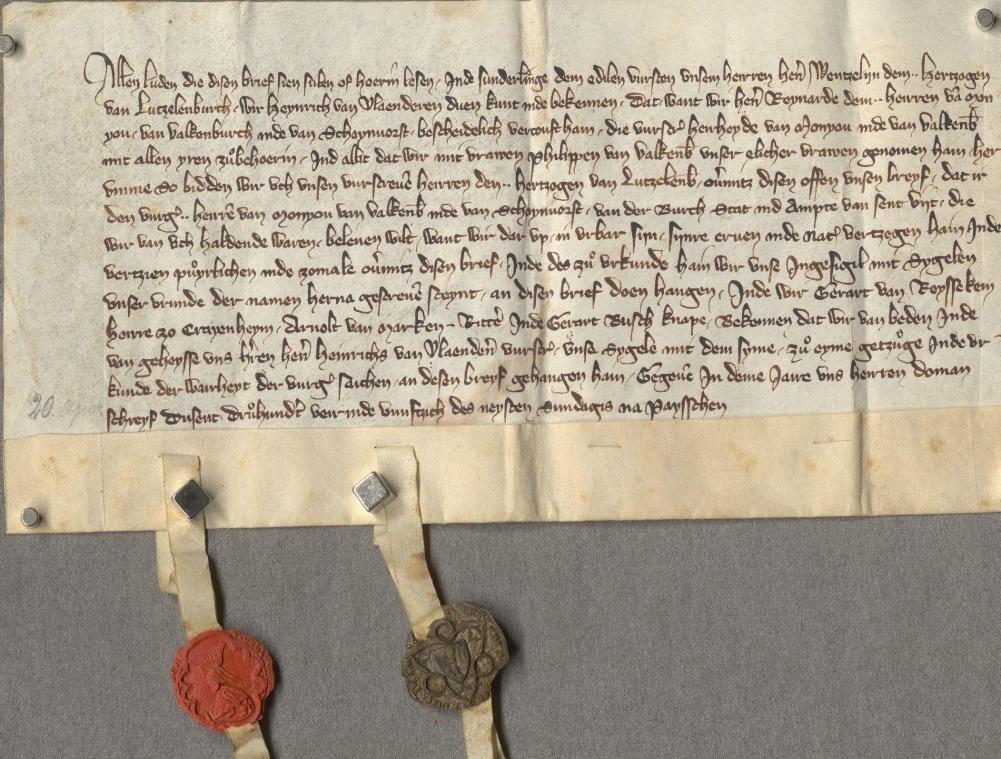 Allen luden die disen brief sien sulen of hoerin lesen, Inde sunderlinge dem edilen vursten vnsem herren hern Wentzelijn dem .. Hertzogen
van Lutzelenburch, Wir Heynrich van Vlaenderen duen kunt inde bekennen, Dat want wir hern Reynarde dem .. herren va Mon
yon, van Valkenburch inde van Schoynuorst, bescheidelich vercouft hain, die vurscr herheyde van Monyon inde van valkenb
mit allen yren zubehoerin, Ind allit dat wir mit vrawen Philippen van Valkenb vnser elicher vrawen genomen hain, her
vmme So bidden wir vch vnsen vurscreue herren den .. hertzogen van Lutzelenb, ouermitz disen offen vnsen breyf, dat ir
den vurg .. herre van Monyou van Valkenb inde van Schoynuorst, van der Burch Stat ind Ampte van sent vijt, die
wir van vch haldende waren, belenen wilt, want wir dar vp, in vrbar sijn, synre eruen inde nac vertzegen hain Inde
vertzien puyrlichen inde zomale ouermitz disen brief, Inde des zu vrkunde hain wir vnse Ingesigil mit Sygelen
vnser vrunde der namen herna gescreue steynt, an disen brief doen hangen, Inde wir Gerart van Reysseken
herre zo Crayenheym, Arnolt van Marken, Ritter Inde Gerart Busch knape, Bekennen dat wir van beden Inde
van geheysse vns herren hern Heinrichs van Vlaenderen vurscr, vnse Sygele mit dem syme, zu eyme getzuge Inde vr
kunde der wairheyt der vurg saichen, an desen breyf gehangen hain, Gegeue In deme Jaire vns herren doman
schreyf Dusent, Druhundert veir inde vunftzich des neysten Sundagis na Paysschen
20. April